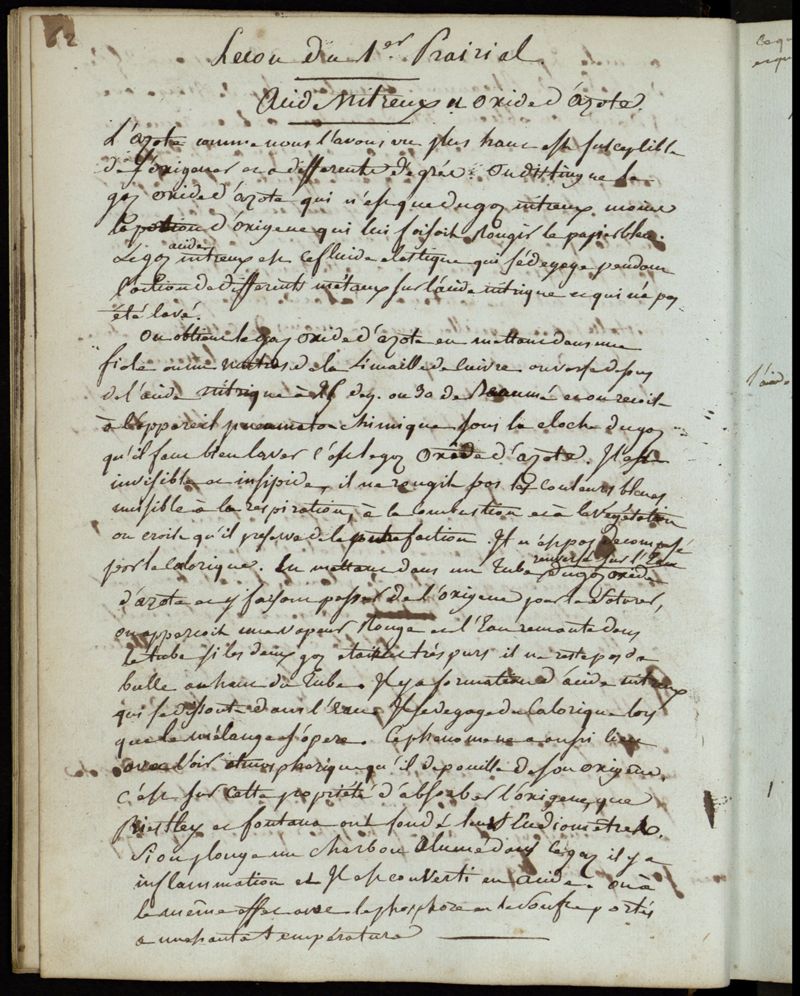 Lecon du 1er. Prairial
Acide Nitreux et oxide d'azote.
L'azote comme nous l'avons vu plus haut est susceptible
de s'oxigener en a differents degrés. On distingue le
gaz oxide d'azote qui n'est que du gaz nitreux moins
la potion d'oxigene qui lui faisoit Rougir le papier bleu.
Le gaz acide nitreux est ce fluide elastique qui se degage pendant
l'action de differents métaux sur l'acide nitrique et qui n'a pas
été lavé.
On obtient le gaz oxide d'azote en mettant dans une
fiole ou un matras de la Limaille de Cuivre on verse dessus
de l'acide nitrique à deg. ou 30 de Beaumé et on recoit
à l'appareil pneumato chimique sous la cloche du gaz
qu'il faut bien laver c'est le gaz oxide d'azote. Il est
invisible et insipide, il ne rougit pas les couleurs bleues
nuisible à la respiration, à la combustion et à la végétation
on croit qu'il préserve de la putrefaction. Il n'est pas decomposé
par le calorique. En mettant dans un Tube renversé sur l'Eau du gaz oxide
d'azote et y faisant passer de l'oxigene pour le saturer,
on apperçoit une vapeur Rouge et l'Eau remonte dans
le tube si les deux gaz etaient très purs il ne reste pas de
bulle au haut du Tube. Il y a formation d'acide nitreux
qui se dissout dans l'eau. Il se degage du Calorique lors
que le mélange s'opere. Ce phenomene a aussi lieu
avec l'air atmospherique qu'il depouille de son oxigene.
C'est sur cette propriété d'absorber l'oxigene que
Priestley et fontana ont fondé leurs Eudiometres.
Si on plonge un charbon allumé dans ce gaz il y a
inflammation et Il est converti en acide. on a
le même effet avec le phosphore et le Soufre portés
a une haute température